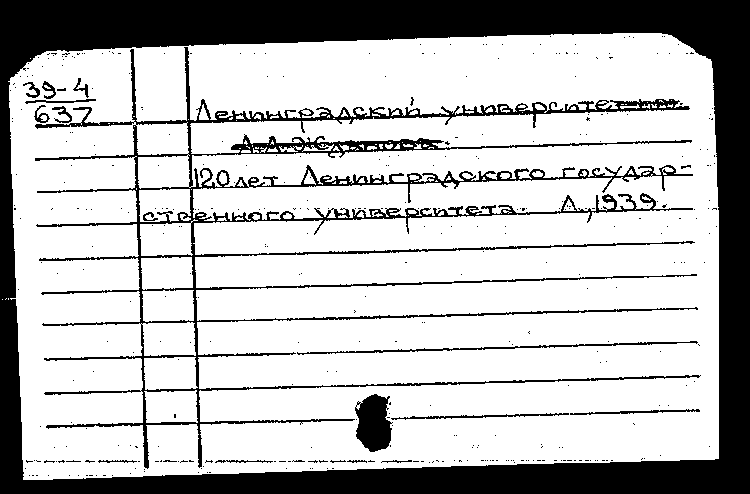 39-4
637
Ленинградский университет им.
А.А.Жданова.
120 лет Ленинградского государ-
ственного университета. Л., 1939.